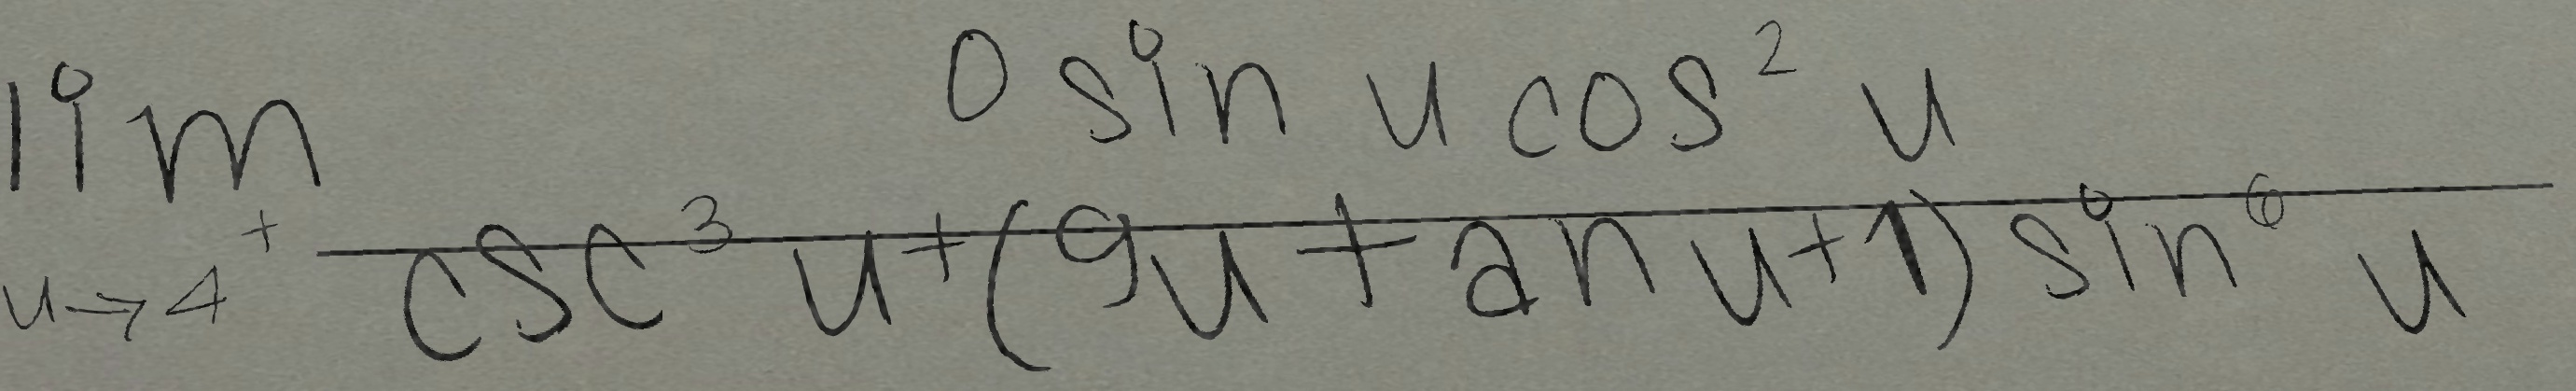 lim u→4⁺ (0 sin u cos² u) / (csc³ u + (9u tan u + 1) sin⁶ u)